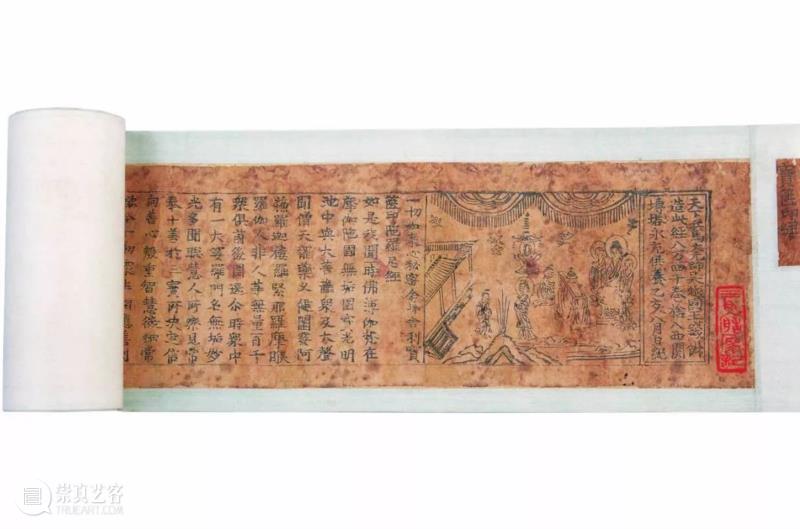 寶篋印經
天下兵馬大元帥吳越國王錢俶
造此經八万四千卷捨入西關
塼塔永充供養乙亥八月日紀
一切如來心秘密全身舍利寶
篋印陀羅尼經
如是我聞一時佛薄伽梵在
摩伽陀國無垢園寶光明
池中與大菩薩衆及大聲
聞僧天龍藥叉健闥婆阿
蘇羅迦樓羅緊那羅摩睺
羅伽人非人等無量百千
衆俱前後圍遶尒時衆中
有一大婆羅門名無垢妙
光多聞聰慧人所樂見常
奉十善於三寶所決定信
向善心殷重智慧微細常
一切衆生相應善利
崇真艺客
TRUEART.COM